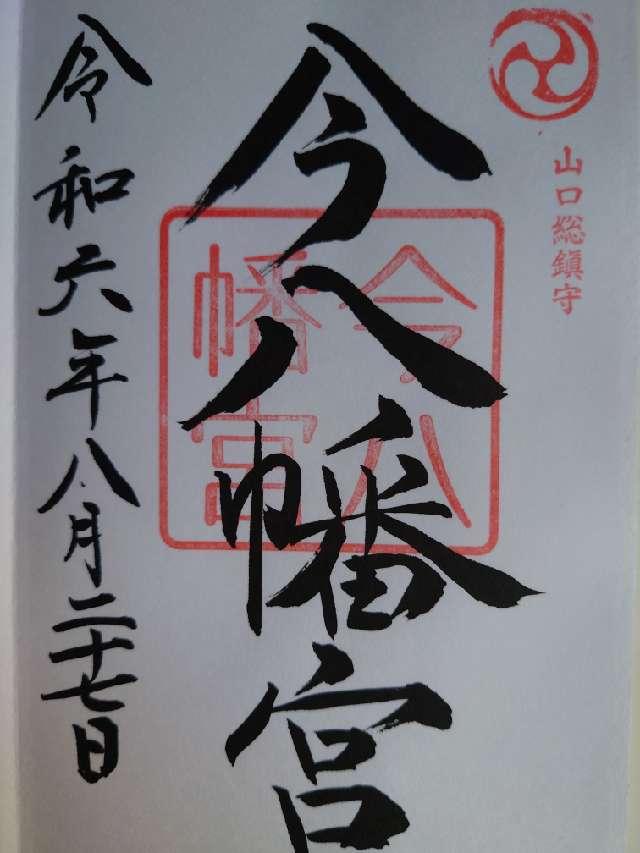 山口総鎮守
今八幡宮
今八
幡宮
令和六年八月二十七日